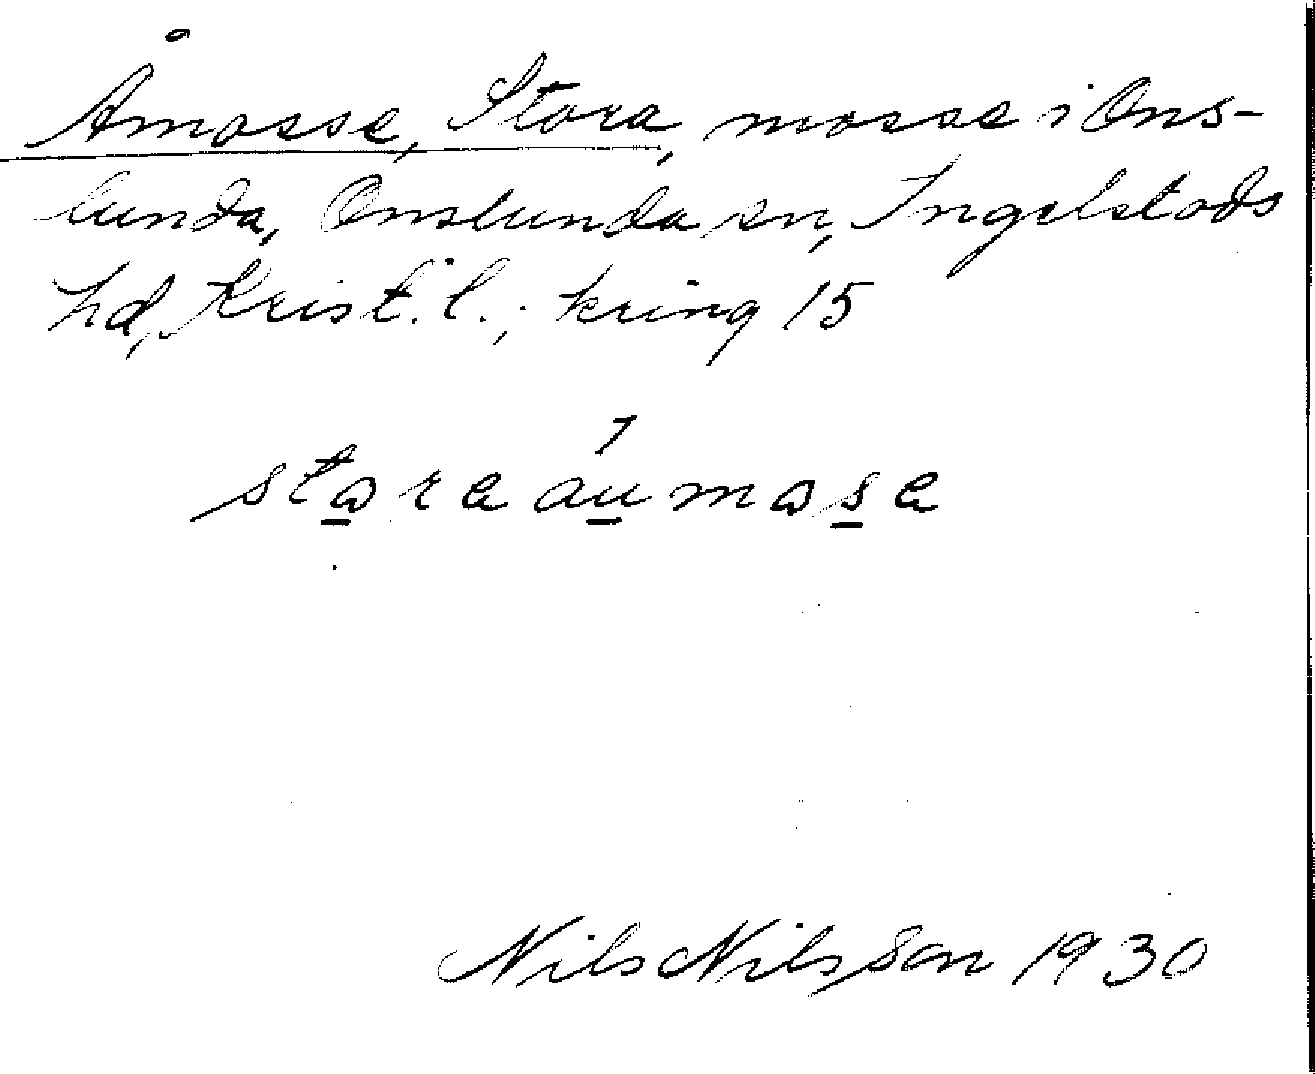 Åmosse, Stora, mosse i Ons-
lunda, Onslunda sn, Ingelstads
hd, Krist. l.; kring 15
stora áumosa
Nils Nilsson 1930